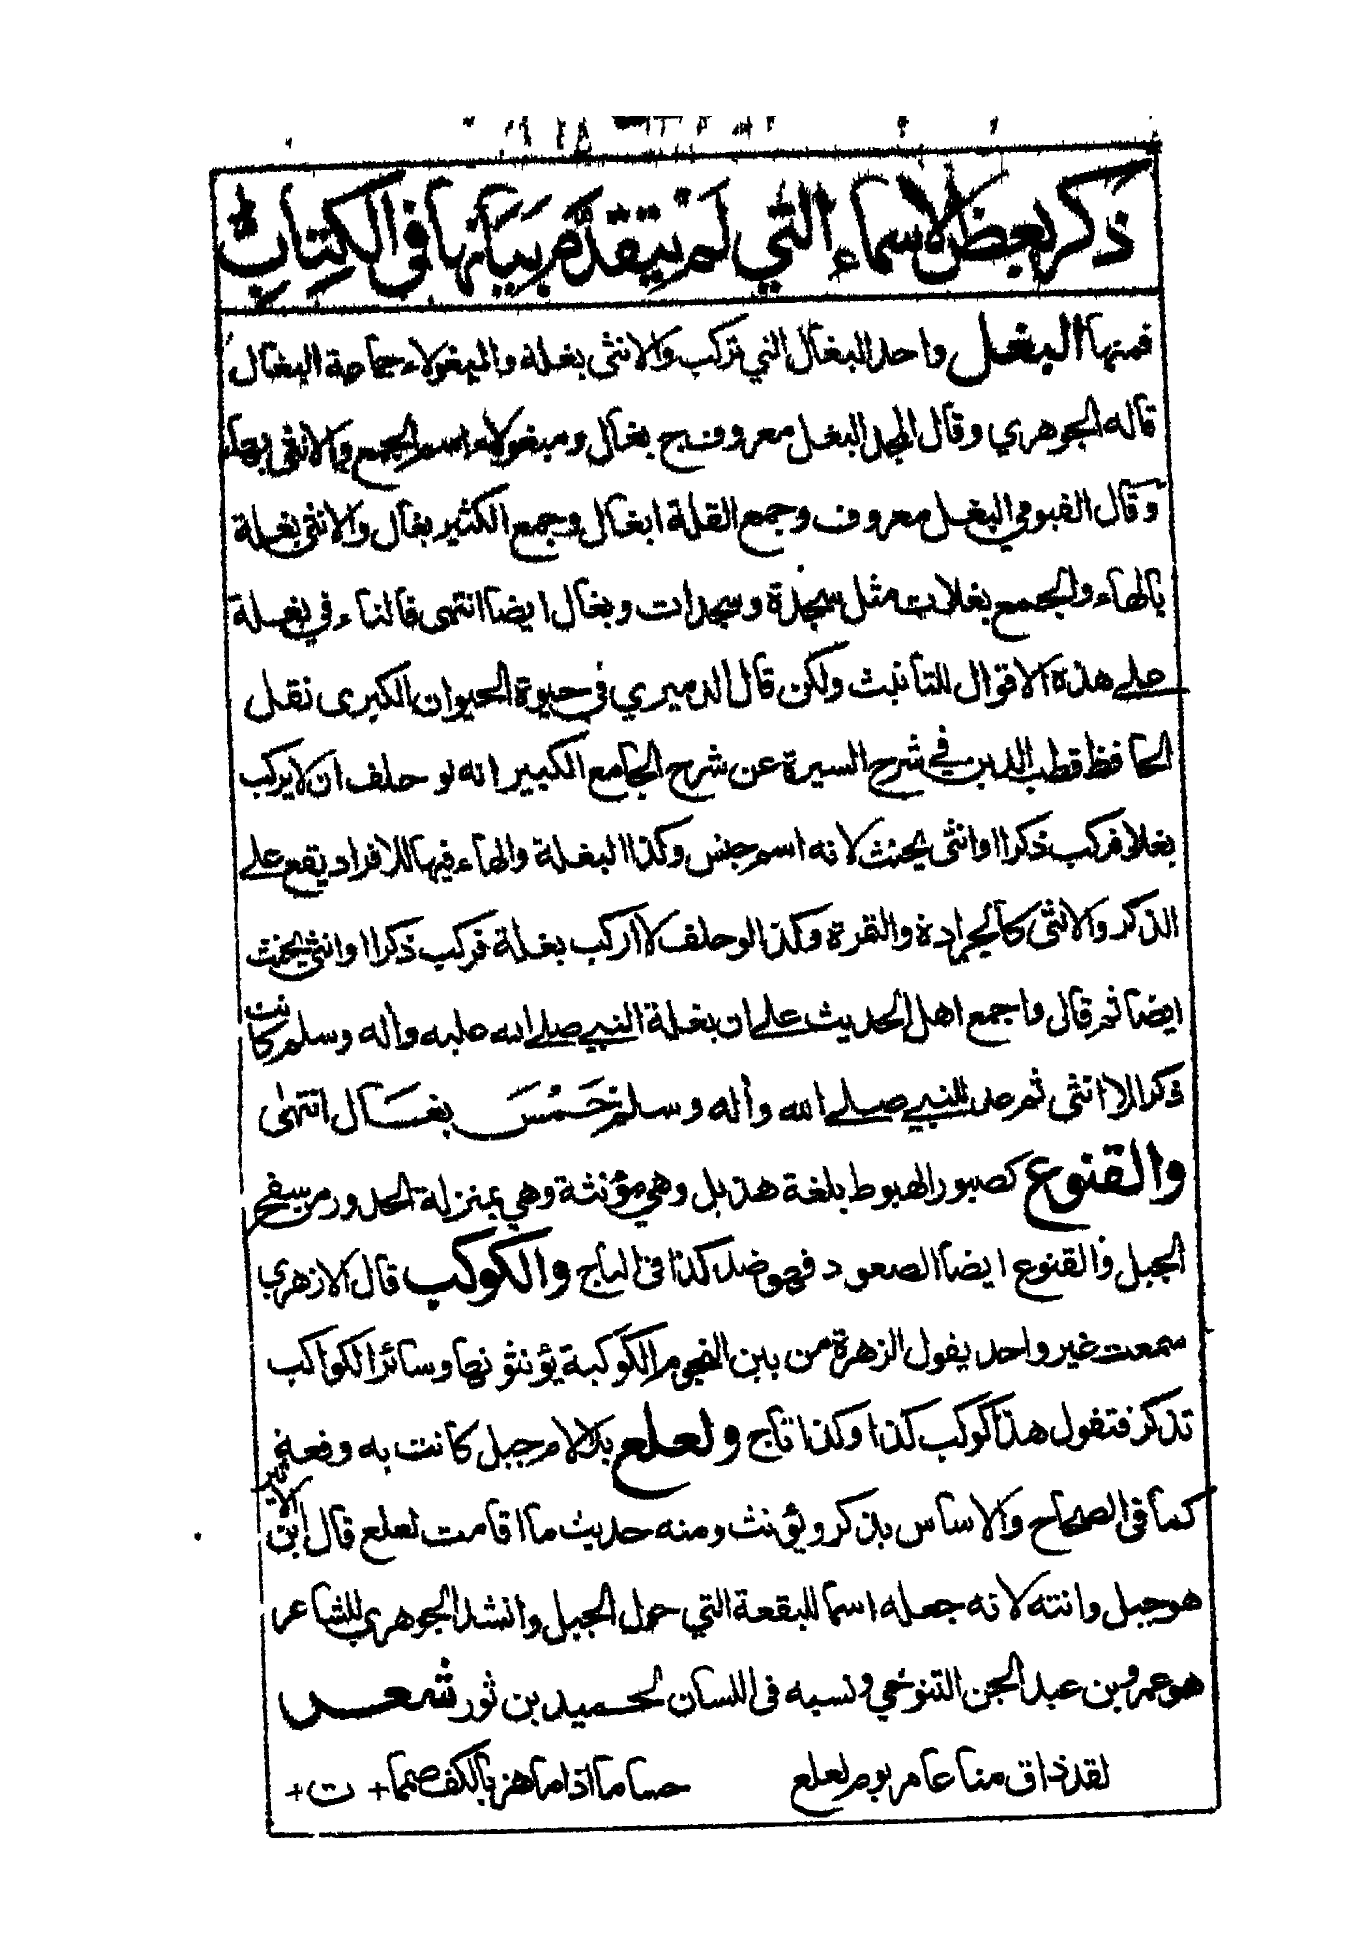 ذكر بعض الاسماء التي لم يتقدم بيانها في الكتاب
فمنها البغل واحد البغال التي تركب والانثى بغلة والمبغولاء جماعة البغال
قاله الجوهري وقال المجد البغل معروف ج بغال ومبغولاء اسم الجمع والانثى بهاء
وقال الفيومي البغل معروف وجمع القلة ابغال وجمع الكثير بغال والانثى بغلة
بالهاء والجمع بغلات مثل سجدة وسجدات وبغال ايضا انتهى فالتاء في بغلة
على هذه الاقوال للتأنيث ولكن قال الدميري في حيوة الحيوان الكبرى نقل
الحافظ قطب الدين في شرح السيرة عن شرح الجامع الكبير انه لو حلف ان لا يركب
بغلا فركب ذكرا او انثى يحنث لانه اسم جنس وكذا البغلة والهاء فيها للافراد يقع على
الذكر والانثى كالجرادة والقرة وكذا لو حلف لا اركب بغلة فركب ذكرا او انثى يحنث
ايضا ثم قال واجمع اهل الحديث على ان بغلة النبي صلى الله عليه وأله وسلم كانت
ذكرا لا انثى ثم عد للنبي صلى الله وأله وسلم خمس بغال انتهى
والقنوع كصبور الهبوط بلغة هذيل وهي مؤنثة وهي بمنزلة الحدور من سفح
الجبل والقنوع ايضا الصعود فهو ضد كذا في التاج والكوكب قال الازهري
سمعت غير واحد يقول الزهرة من بين النجوم الكوكبة يؤنثونها وسائر الكواكب
تذكر فتقول هذا كوكب كذا وكذا تاج ولعلع بلا لام جبل كانت به وقعة
كما في الصحاح والاساس يذكر ويؤنث ومنه حديث ما اقامت لعلع قال ابن الاثير
هو جبل وانثه لانه جعله اسما للبقعة التي حول الجبل وانشد الجوهري للشاعر
هو عمرو بن عبد الجن التنوخي ونسبه في اللسان لحميد بن ثور شعر
لقد ذاق منا عامر يوم لعلع حساما اذا ما هز بالكف صمما + ت +